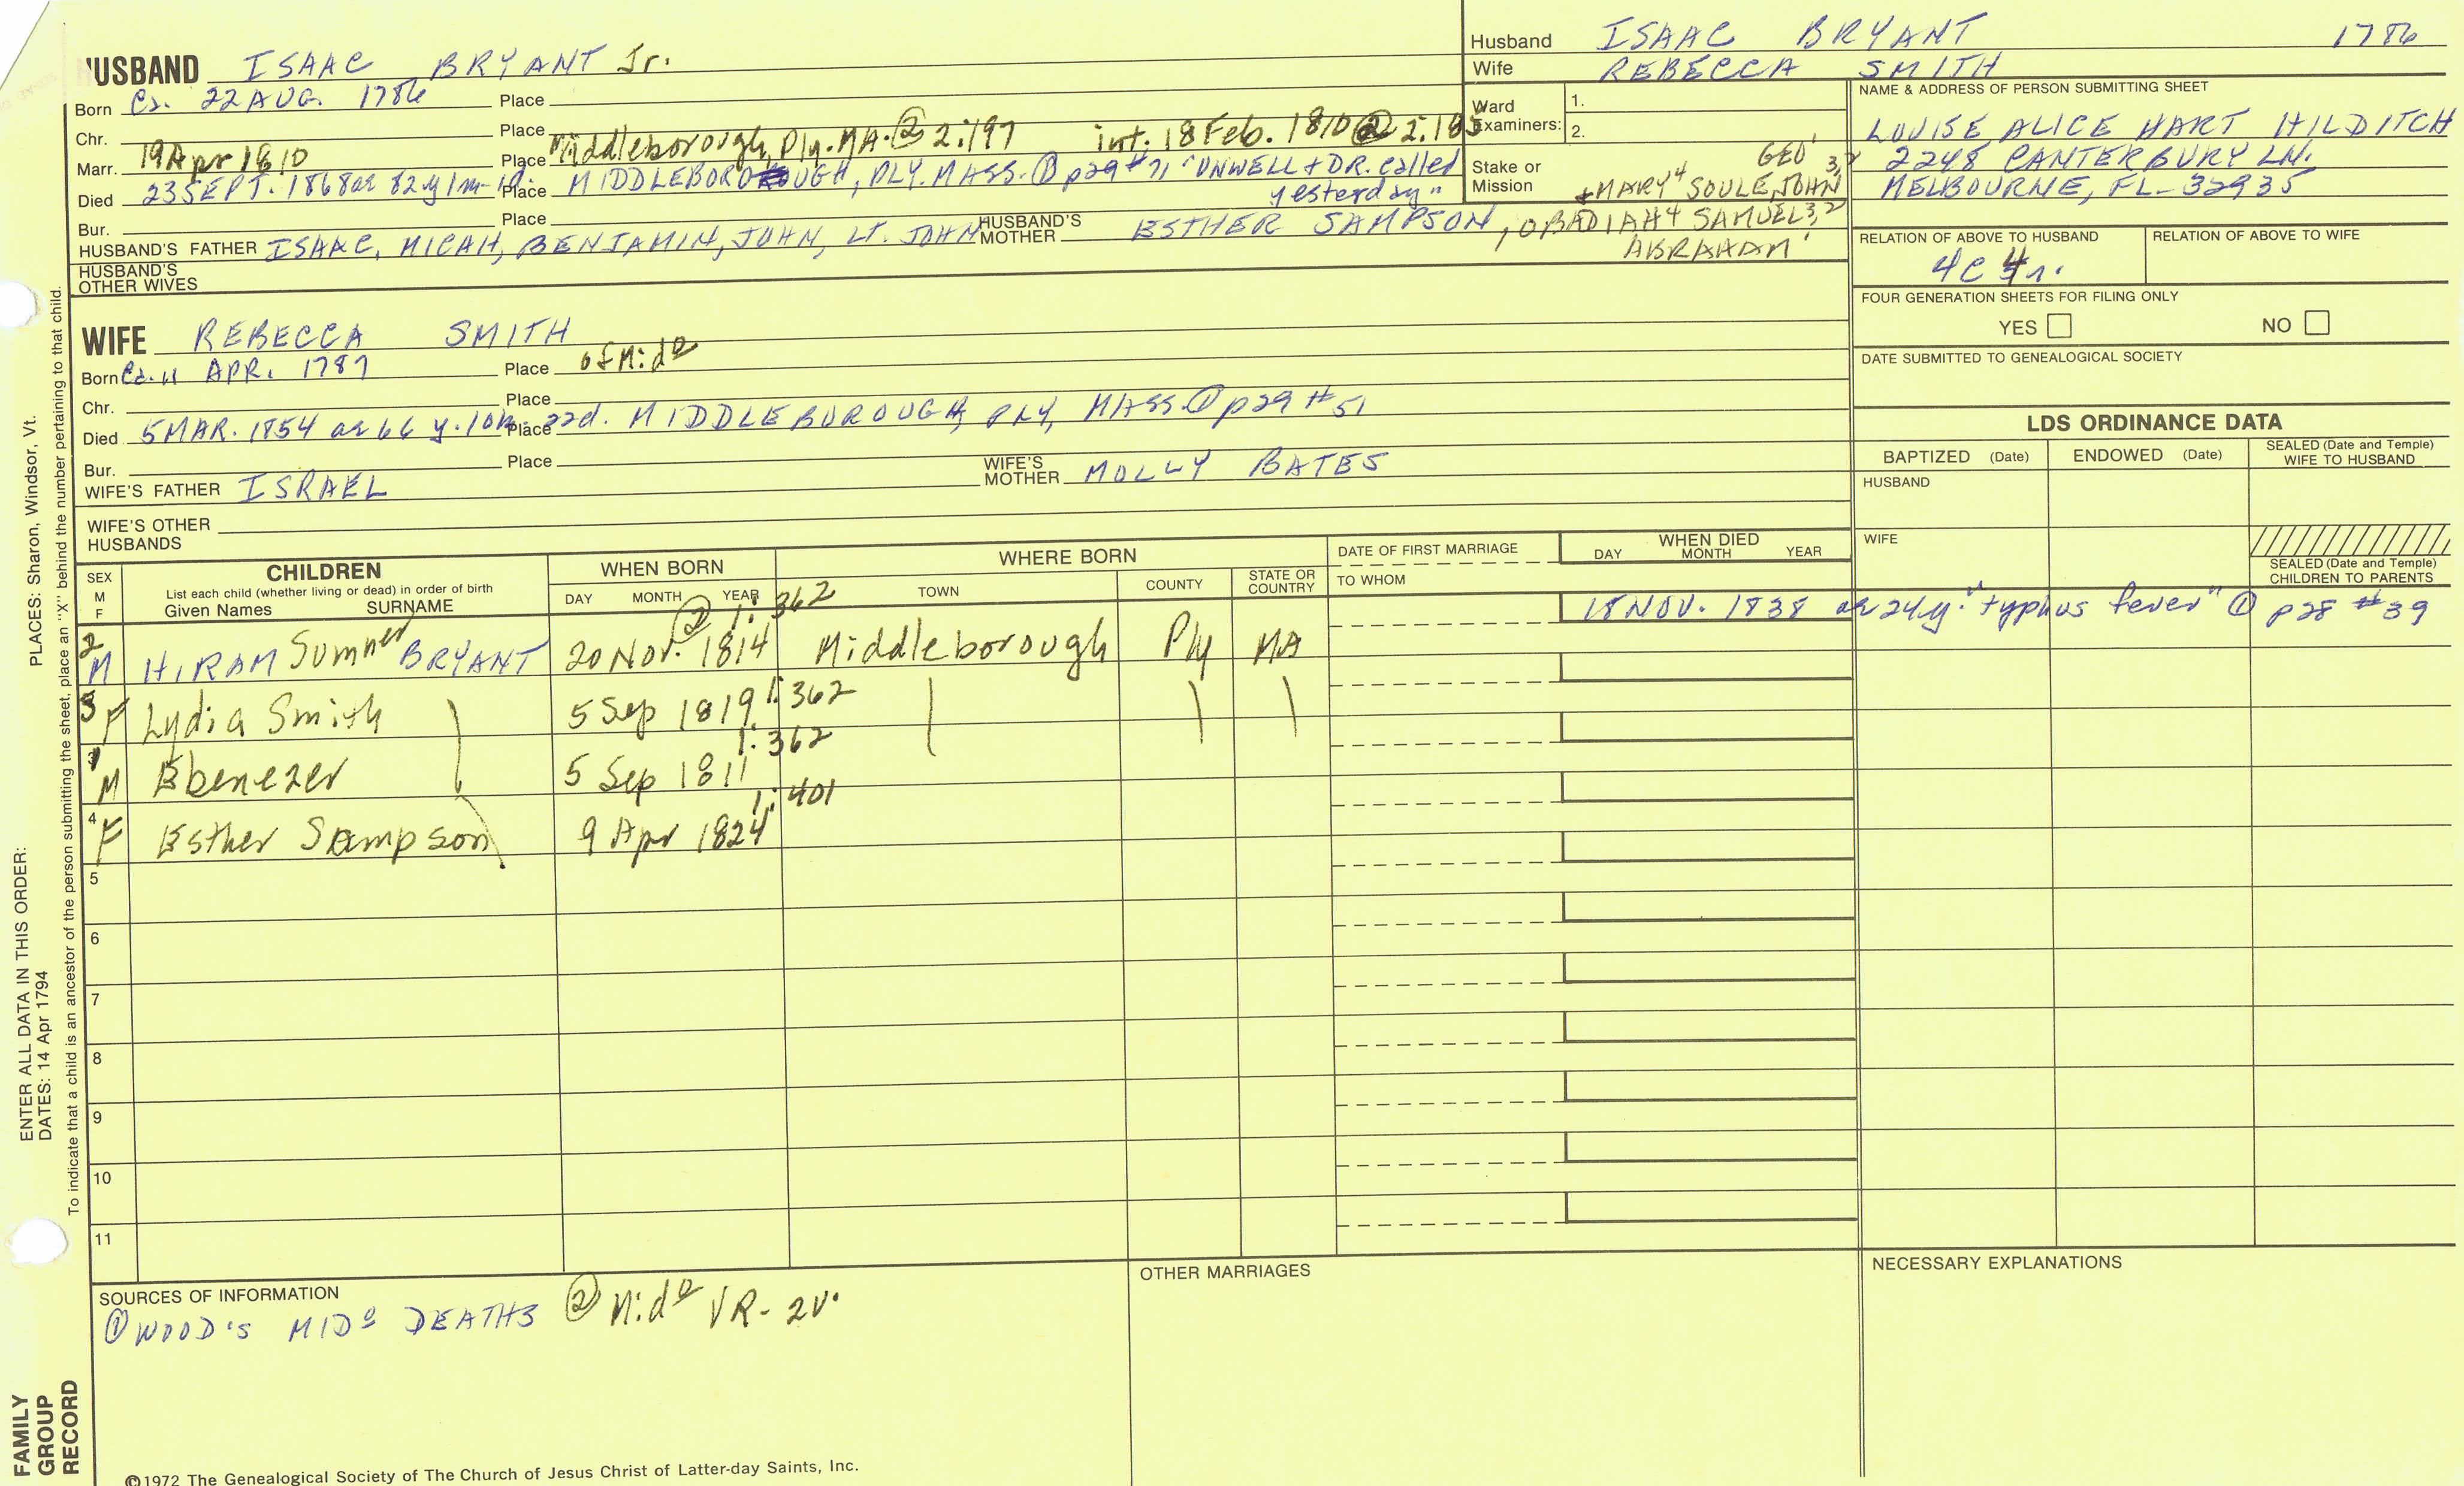 HUSBAND ISAAC BRYANT Jr.
Born Ca. 22 AUG. 1786 Place
Chr. Place
Marr. 19 Apr 1810 Place Middleborough, Ply. MA. ② 2:197 int. 18 Feb. 1810 ② 2:185
Died 23 SEPT. 1868 ae 82 y 1 m - 1d. Place MIDDLEBOROUGH, PLY. MASS. ① p29 #71 "UNWELL + DR. called yesterday"
Bur. Place
HUSBAND'S FATHER ISAAC, MICAH, BENJAMIN, JOHN, LT. JOHN HUSBAND'S MOTHER ESTHER SAMPSON, OBADIAH4 SAMUEL3,2 ABRAHAM1
+ MARY4 SOULE, JOHN 3,2 GEO1
HUSBAND'S OTHER WIVES
Husband ISAAC BRYANT 1786
Wife REBECCA SMITH
Ward Examiners: 1.
2.
Stake or Mission
NAME & ADDRESS OF PERSON SUBMITTING SHEET
LOUISE ALICE HART HILDITCH
2248 CANTERBURY LN.
MELBOURNE, FL - 32935
RELATION OF ABOVE TO HUSBAND RELATION OF ABOVE TO WIFE
4C 4r.
FOUR GENERATION SHEETS FOR FILING ONLY
YES NO
DATE SUBMITTED TO GENEALOGICAL SOCIETY
WIFE REBECCA SMITH
Born Ca. 11 APR. 1787 Place of Mido
Chr. Place
Died 5 MAR. 1854 ae 66 y. 10m. 22d. Place MIDDLEBOROUGH, PLY, MASS. ① p29 #51
Bur. Place
WIFE'S FATHER ISRAEL WIFE'S MOTHER MOLLY BATES
WIFE'S OTHER HUSBANDS
LDS ORDINANCE DATA
BAPTIZED (Date) ENDOWED (Date) SEALED (Date and Temple) WIFE TO HUSBAND
HUSBAND
WIFE
SEALED (Date and Temple) CHILDREN TO PARENTS
SEX M F
CHILDREN
List each child (whether living or dead) in order of birth
Given Names SURNAME
WHEN BORN
DAY MONTH YEAR
WHERE BORN
TOWN COUNTY STATE OR COUNTRY
DATE OF FIRST MARRIAGE
TO WHOM
WHEN DIED
DAY MONTH YEAR
2 M HIRAM Sumner BRYANT 20 Nov. 1814 ② 1:362 Middleborough Ply MA 18 NOV. 1838 ae 24y. "typhus fever" ① p28 #39
3 F Lydia Smith 5 Sep 1819 1:362
1 M Ebenezer 5 Sep 1811 1:362
4 F Esther Sampson 9 Apr 1824 1:401
5
6
7
8
9
10
11
SOURCES OF INFORMATION
① WOOD'S MIDo DEATHS ② Mido VR - 2v.
OTHER MARRIAGES
NECESSARY EXPLANATIONS
©1972 The Genealogical Society of The Church of Jesus Christ of Latter-day Saints, Inc.
FAMILY GROUP RECORD
ENTER ALL DATA IN THIS ORDER:
DATES: 14 Apr 1794
PLACES: Sharon, Windsor, Vt.
To indicate that a child is an ancestor of the person submitting the sheet, place an "X" behind the number pertaining to that child.